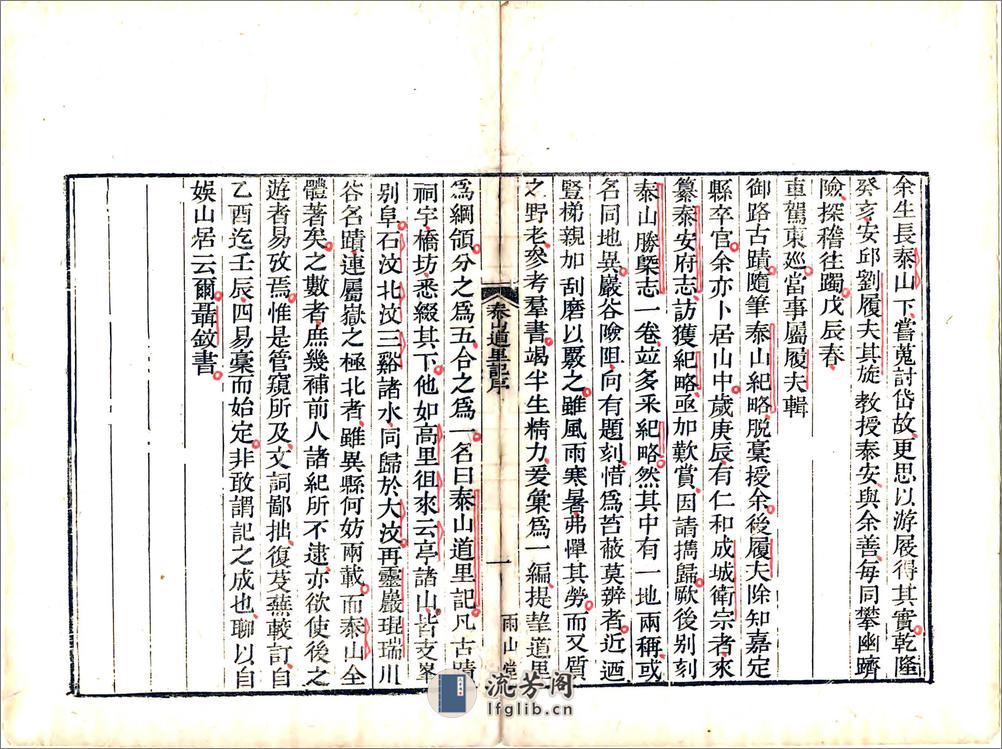 余生長泰山下嘗蒐討岱故更思以游屐得其實乾隆
癸亥安邱劉履夫其旋教授泰安與余善每同攀幽躋
險探稽往躅戊辰春
車駕東廵當事屬履夫輯
御路古蹟隨筆泰山紀略脫稾授余後履夫除知嘉定
縣卒官余亦卜居山中歲庚辰有仁和成城衛宗者來
纂泰安府志訪獲紀略亟加歎賞因請攜歸厥後别刻
泰山勝槩志一卷竝多采紀略然其中有一地兩稱或
名同地異巖谷險阻向有題刻惜爲苔蔽莫辨者近迺
豎梯親加刮磨以覈之雖風雨寒暑弗憚其勞而又質
之野老參考羣書竭半生精力爰彙爲一編提挈道里
泰山道里記序
一
雨山堂
爲綱領分之爲五合之爲一名曰泰山道里記凡古蹟
祠宇橋坊悉綴其下他如高里徂徠云亭諸山皆支峯
别阜石汶北汶三谿諸水同歸於大汶再靈巖琨瑞川
谷名蹟連屬嶽之極北者雖異縣何妨兩載而泰山全
體著矣之數者庶幾補前人諸紀所不逮亦欲使後之
遊者易攷焉惟是管窺所及文詞鄙拙復芟蕪較訂自
乙酉迄壬辰四易稾而始定非敢謂記之成也聊以自
娱山居云爾聶鈫書
流芳阁
lfglib.cn